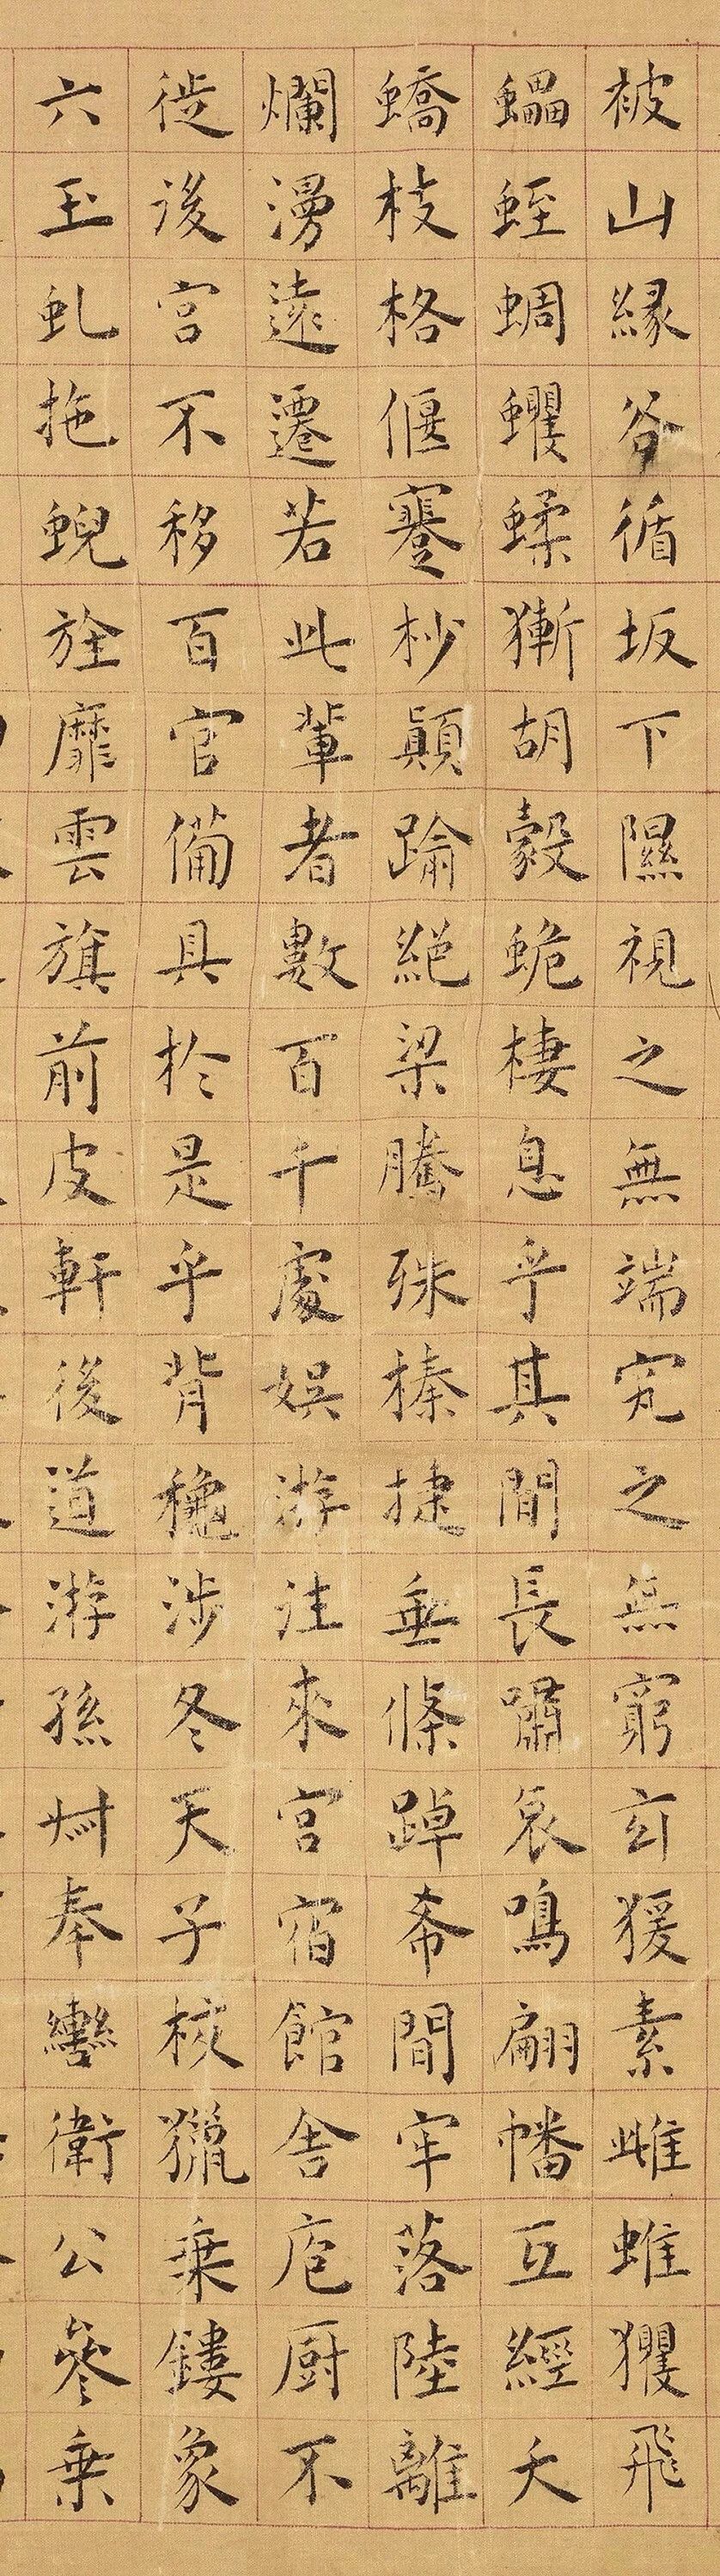 被山緣谷循坂下隰視之無端究之無窮玄猨素雌蜼玃飛
蠝蛭蜩蠼蝚獑胡豰蛫棲息乎其間長嘯哀鳴翩幡互經夭
蟜枝格偃蹇杪顛踰絕梁騰殊榛捷垂條踔希間牢落陸離
爛漫遠遷若此輩者數百千處娛游往來宮宿館舍庖厨不
徙後宮不移百官備具於是乎背秋涉冬天子校獵乗鏤象
六玉虬拖蜺旌靡雲旗前皮軒後道游孫叔奉轡衛公參乗